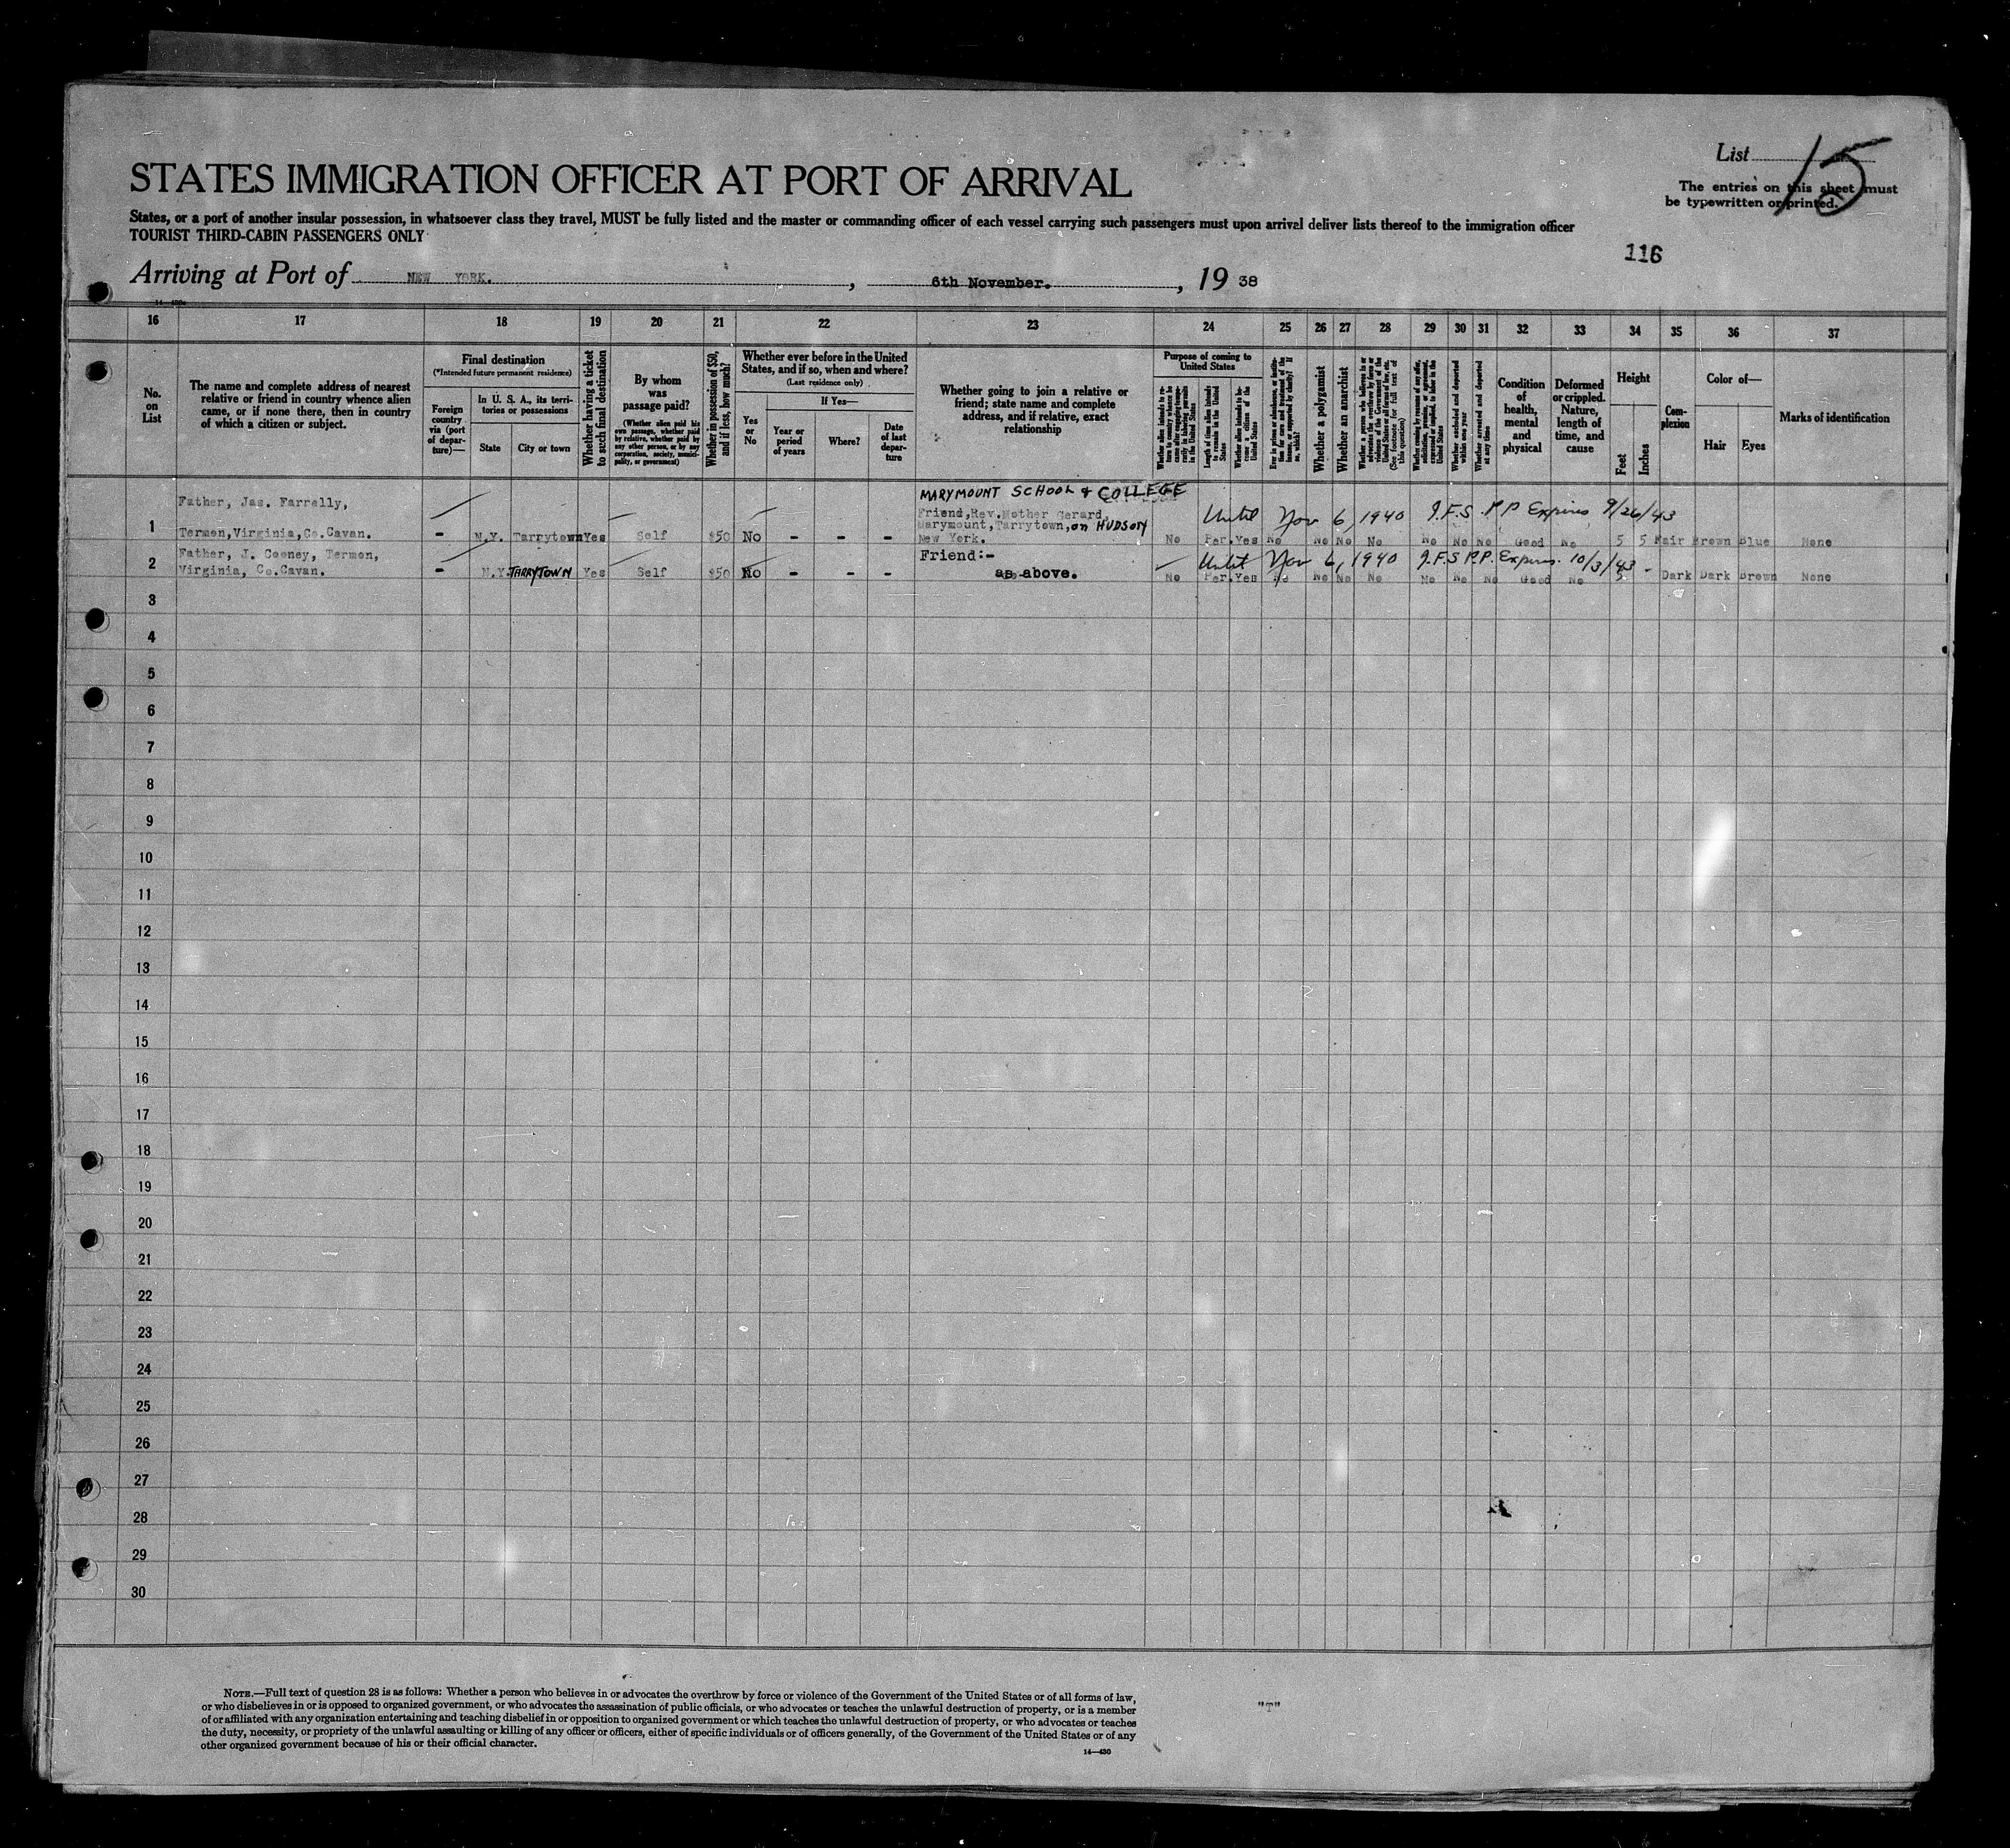 List 15
STATES IMMIGRATION OFFICER AT PORT OF ARRIVAL
The entries on this sheet must
be typewritten or printed.
States, or a port of another insular possession, in whatsoever class they travel, MUST be fully listed and the master or commanding officer of each vessel carrying such passengers must upon arrival deliver lists thereof to the immigration officer
TOURIST THIRD-CABIN PASSENGERS ONLY
116
Arriving at Port of NEW YORK. , 6th November. , 19 38
16 17 18 19 20 21 22 23 24 25 26 27 28 29 30 31 32 33 34 35 36 37
No.
on
List
The name and complete address of nearest
relative or friend in country whence alien
came, or if none there, then in country
of which a citizen or subject.
Final destination
(*Intended future permanent residence)
Foreign
country
via (port
of depar-
ture)—
In U. S. A., its terri-
tories or possessions
State
City or town
Whether having a ticket
to such final destination
By whom
was
passage paid?
(Whether alien paid his
own passage, whether paid
by relative, whether paid by
any other person, or by any
corporation, society, munici-
pality, or government)
Whether in possession of $50,
and if less, how much?
Whether ever before in the United
States, and if so, when and where?
(Last residence only)
Yes
or
No
If Yes—
Year or
period
of years
Where?
Date
of last
depar-
ture
Whether going to join a relative or
friend; state name and complete
address, and if relative, exact
relationship
Purpose of coming to
United States
Whether alien intends to re-
turn to country whence he
came after engaging tempo-
rarily in laboring pursuits
in the United States
Length of time alien intends
to remain in the United
States
Whether alien intends to be-
come a citizen of the
United States
Ever in prison or almshouse, or institu-
tion for care and treatment of the
insane, or supported by charity? If
so, which?
Whether a polygamist
Whether an anarchist
Whether a person who believes in or
advocates the overthrow by force or
violence of the Government of the
United States or all forms of law, etc.
(See footnote for full text of
this question)
Whether coming by reason of any offer,
solicitation, promise, or agreement,
expressed or implied, to labor in the
United States
Whether excluded and deported
within one year
Whether arrested and deported
at any time
Condition
of
health,
mental
and
physical
Deformed
or crippled.
Nature,
length of
time, and
cause
Height
Feet
Inches
Com-
plexion
Color of—
Hair
Eyes
Marks of identification
MARYMOUNT SCHOOL & COLLEGE
Father, Jas. Farrelly,
Friend, Rev. Mother Gerard,
Until Nov 6, 1940 J.F.S. P P Expires 9/26/43
Marymount, Tarrytown, on HUDSON
1 Termon, Virginia, Co. Cavan. - N.Y. Tarrytown Yes Self $50 No - - - New York. No Per. Yes No No No No No No No Good No 5 5 Fair Brown Blue None
Father, J. Cooney, Termon, Friend:- Until Nov 6, 1940 J.F.S P.P. Expires. 10/3/43
2 Virginia, Co. Cavan. - N.Y. TARRYTOWN Yes Self $50 No - - - as above. No Per. Yes No No No No No No No Good No 5 - Dark Dark Brown None
3
4
5
6
7
8
9
10
11
12
13
14
15
16
17
18
19
20
21
22
23
24
25
26
27
28
29
30
NOTE.—Full text of question 28 is as follows: Whether a person who believes in or advocates the overthrow by force or violence of the Government of the United States or of all forms of law,
or who disbelieves in or is opposed to organized government, or who advocates the assassination of public officials, or who advocates or teaches the unlawful destruction of property, or is a member
of or affiliated with any organization entertaining and teaching disbelief in or opposition to organized government or which teaches the unlawful destruction of property, or who advocates or teaches
the duty, necessity, or propriety of the unlawful assaulting or killing of any officer or officers, either of specific individuals or of officers generally, of the Government of the United States or of any
other organized government because of his or their official character.
"T"
14—430